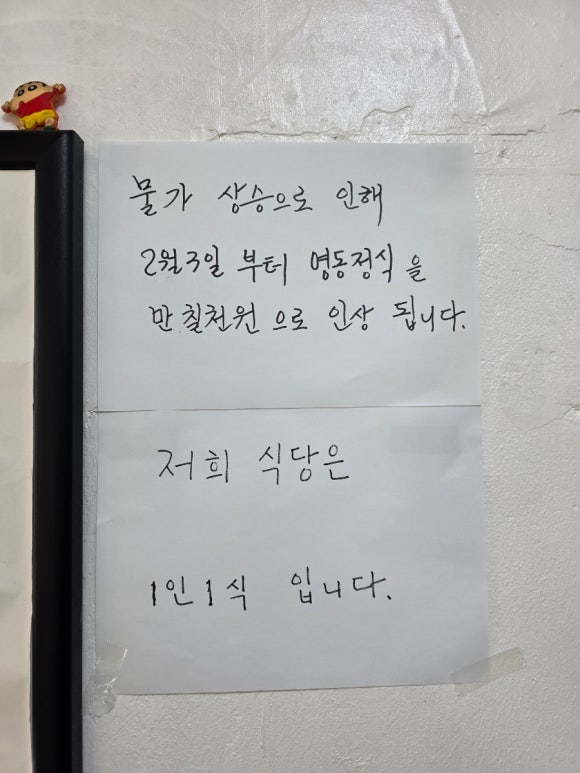 물가 상승으로 인해
2월3일 부터 영동정식 을
만 칠천원 으로 인상 됩니다.
저희 식당은
1인1식 입니다.